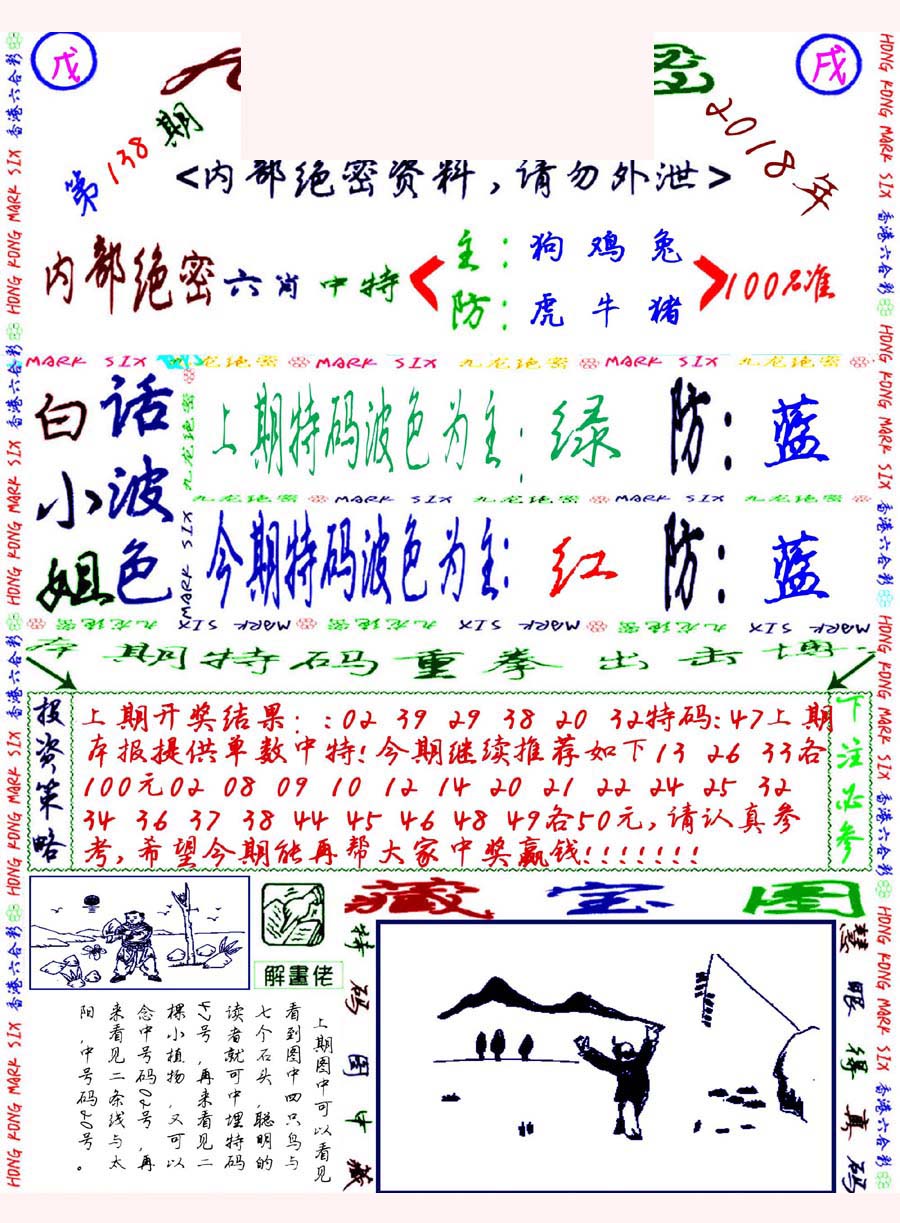 戊
戌
第138期
2018年
<内部绝密资料,请勿外泄>
内部绝密六肖中特
主:狗鸡兔
防:虎牛猪
100%准
MARK SIX 九龙绝密 MARK SIX 九龙绝密 MARK SIX 九龙绝密
白小姐
话波色
上期特码波色为主:绿 防:蓝
九龙绝密 MARK SIX 九龙绝密 MARK SIX 九龙绝密
今期特码波色为主:红 防:蓝
九龙绝密 MARK SIX 九龙绝密 MARK SIX 九龙绝密 MARK SIX
九龙绝密 MARK SIX
本期特码重拳出击
投资策略
上期开奖结果::02 39 29 38 20 32特码:47上期
本报提供单数中特!今期继续推荐如下13 26 33各
100元02 08 09 10 12 14 20 21 22 24 25 32
34 36 37 38 44 45 46 48 49各50元,请认真参
考,希望今期能再帮大家中奖赢钱!!!!!!!
下注必参
藏宝图
解畫佬
上期图中可以看见
看到图中四只鸟与
七个石头,聪明的
读者就可中埋特码
47号,再来看见二
棵小植物,又可以
念中号码02号,再
来看见二条线与太
阳,中号码
特码图中藏
慧眼得真码
香港六合彩 HONG KONG MARK SIX 香港六合彩 HONG KONG MARK SIX 香港六合彩 HONG KONG MARK SIX 香港六合彩 HONG KONG MARK SIX
HONG KONG MARK SIX 香港六合彩 HONG KONG MARK SIX 香港六合彩 HONG KONG MARK SIX 香港六合彩 HONG KONG MARK SIX 香港六合彩